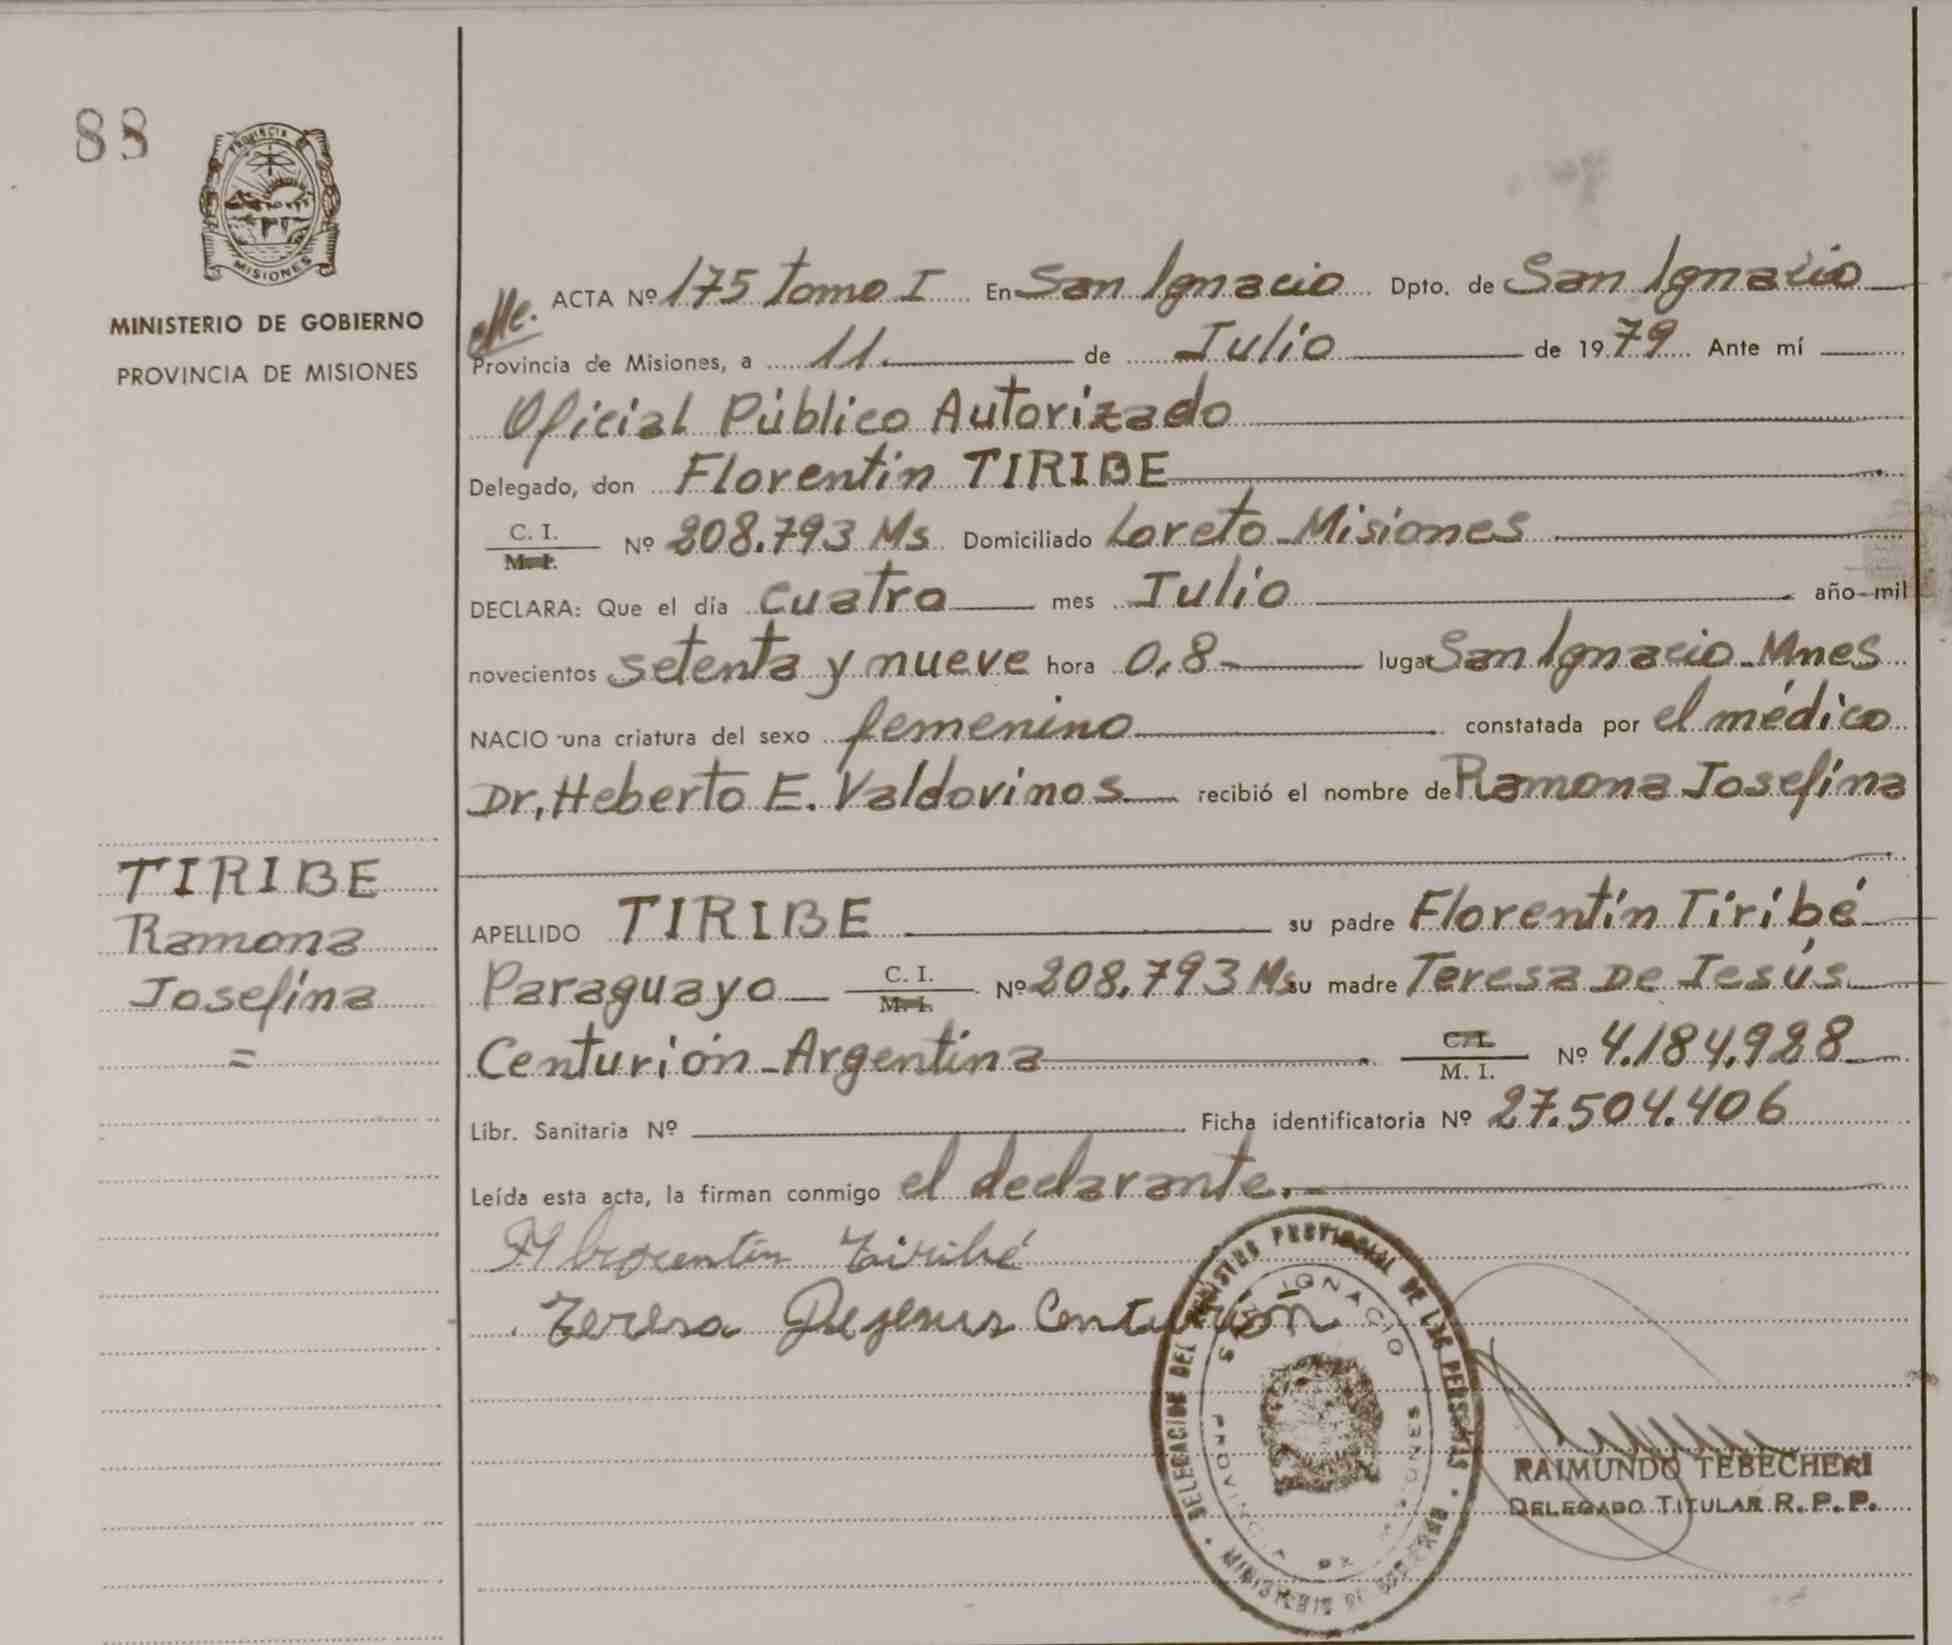 88
PROVINCIA DE
MISIONES
MINISTERIO DE GOBIERNO
PROVINCIA DE MISIONES
TIRIBE
Ramona
Josefina
=
ACTA Nº 175 Tomo I En San Ignacio Dpto. de San Ignacio
Provincia de Misiones, a 11 de Julio de 1979 Ante mí
Oficial Público Autorizado
Delegado, don Florentín TIRIBE
C. I.
M. I.
Nº 208.793 Ms Domiciliado Loreto - Misiones
DECLARA: Que el día cuatro mes Julio año mil
novecientos setenta y nueve hora 0,8 lugar San Ignacio - Mnes
NACIO una criatura del sexo femenino constatada por el médico
Dr, Heberto E. Valdovinos recibió el nombre de Ramona Josefina
APELLIDO TIRIBE su padre Florentín Tiribé
Paraguayo C. I. Nº 208.793 Ms su madre Teresa De Jesús
M. I.
Centurión - Argentina C. I. Nº 4.184.988
M. I.
Libr. Sanitaria Nº Ficha identificatoria Nº 27.504.406
Leída esta acta, la firman conmigo el declarante.
Florentín Tiribé
Teresa Dejesus Centurión
DELEGACION DEL REGISTRO PROVINCIAL DE LAS PERSONAS
SAN IGNACIO
PROVINCIA DE MISIONES
RAIMUNDO TEBECHERI
DELEGADO TITULAR R.P.P.